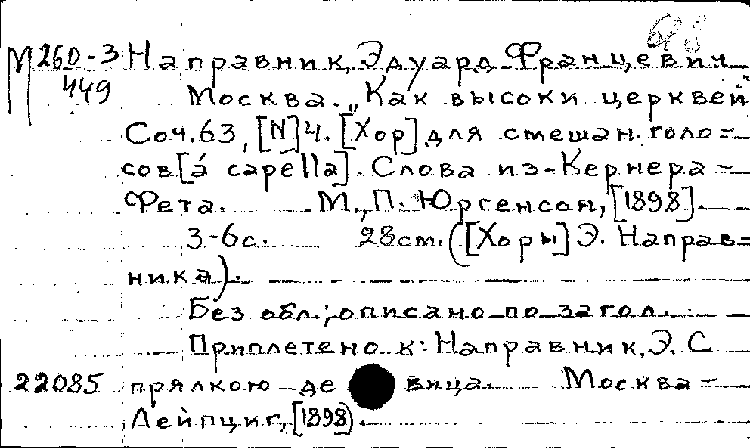 М 260-3 Направник, Эдуард Францевич
449 Москва. „Как высоки церквей
Соч. 63, [N] 4. [Хор] для смешан. голо-
сов [á capella]. Слова из Кернера -
Фета. М., П. Юргенсон, [1898].
3-6 с. 28 см. ([Хоры] Э. Направ-
ника).
Без обл.; описано по загол.
Приплетено к: Направник, Э. С
22085 прялкою де вица. Москва-
Лейпциг, [1898].